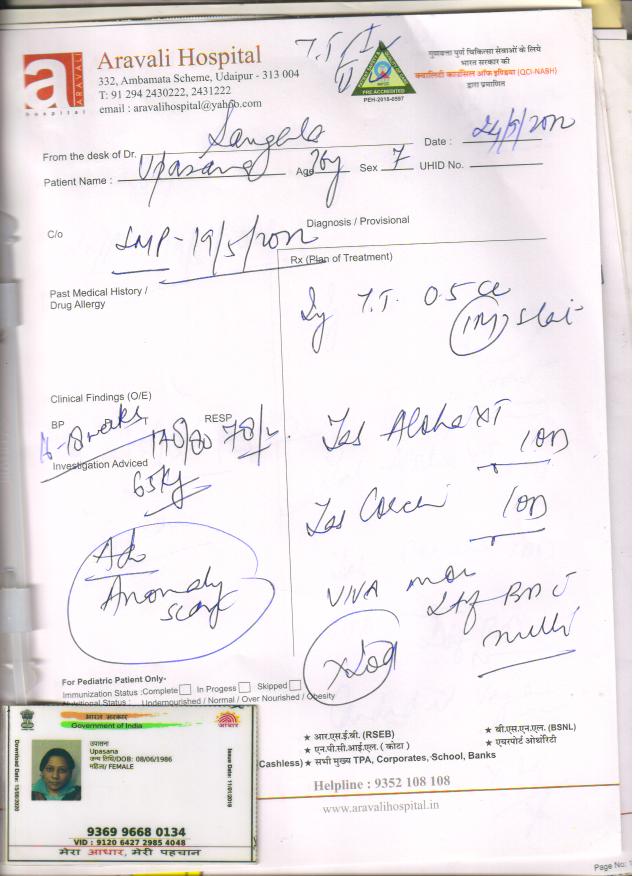 Aravali Hospital
332, Ambamata Scheme, Udaipur - 313 004
T: 91 294 2430222, 2431222
email : aravalihospital@yahoo.com
a
ARAVALI
hospital
T.T. I
II
PRE ACCREDITED
PEH-2018-0597
गुणवत्ता पुर्ण चिकित्सा सेवाओं के लिये
भारत सरकार की
क्वालिटी काउंसिल ऑफ इण्डिया (QCI-NABH)
द्वारा प्रमाणित
From the desk of Dr. Sangeeta
Date : 24/9/2022
Patient Name : Upasana Age 36y Sex F UHID No.
C/o LMP - 19/5/2022
Diagnosis / Provisional
Past Medical History /
Drug Allergy
Rx (Plan of Treatment)
Inj T.T. 0.5 cc
(IM) stat
Clinical Findings (O/E)
BP RESP
16-18 weeks 140/80 78/
Investigation Adviced
65 kg
Adv
Anomaly scan
Tab Alpha XT 1OD
1OD
VIVA mom
milk
x 10d
For Pediatric Patient Only-
Immunization Status :Complete In Progess Skipped
Nutritional Status : Undernourished / Normal / Over Nourished / Obesity
★ आर.एस.ई.बी. (RSEB) ★ बी.एस.एन.एल. (BSNL)
★ एन.पी.सी.आई.एल. ( कोटा ) ★ एयरपोर्ट ऑथॉरिटी
Cashless) ★ सभी मुख्य TPA, Corporates, School, Banks
Helpline : 9352 108 108
www.aravalihospital.in
भारत सरकार
Government of India
उपासना
Upasana
जन्म तिथि/DOB: 08/06/1986
महिला/ FEMALE
Download Date: 15/08/2020
Issue Date: 11/01/2019
9369 9668 0134
VID : 9120 6427 2985 4048
मेरा आधार, मेरी पहचान
Page No: 1